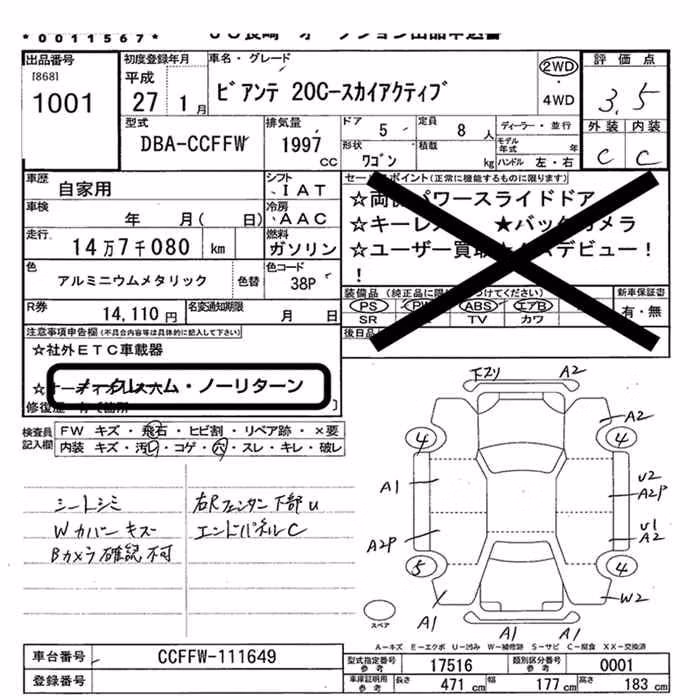 *0011567*
出品番号
[868]
1001
初度登録年月
平成
27 1月
車名・グレード
ビアンテ 20C-スカイアクティブ
2WD
・
4WD
評価点
3.5
外装 内装
C C
型式
DBA-CCFFW
排気量
1997
CC
ドア 5
定員 8人
ディーラー・並行
形状 ワゴン
積載 kg
モデル年式 年
ハンドル 左・右
車歴 自家用
シフト IAT
車検 年 月( 日)
冷房 AAC
走行 14万7千080 km
燃料 ガソリン
色 アルミニウムメタリック 色替
色コード 38P
R券 14,110円
名変通知期限 月 日
セールスポイント(正常に機能するものに限ります)
パワースライドドア
☆キーレ ★バックカメラ
☆ユーザー買取
デビュー!
!
装備品
PS ABS エアB
SR TV カワ
新車保証書
有・無
後日品
注意事項申告欄(不具合内容等は具体的に記入して下さい)
☆社外ETC車載器
ノークレーム・ノーリターン
検査員記入欄
FW キズ・飛石・ヒビ割・リペア跡・×要
内装 キズ・汚レ・コゲ・穴・スレ・キレ・破レ
シートシミ
Wカバーキズ
Bカメラ確認不可
右Rフェンダー下部U
エンドパネルC
下スリ A2
A2
4 4
A1
U2
A2P
U1
A2
A2P
5 4
W2
A1 A1 A1
スペア
A-キズ E-エクボ U-凹み W-補修跡 S-サビ C-腐食 XX-交換済
車台番号 CCFFW-111649
登録番号
型式指定番号 参考 17516
類別区分番号 参考 0001
車庫証明用 参考 長さ 471cm 幅 177cm 高さ 183cm